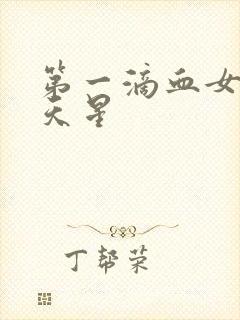 第一滴血女
天星
丁帮荣